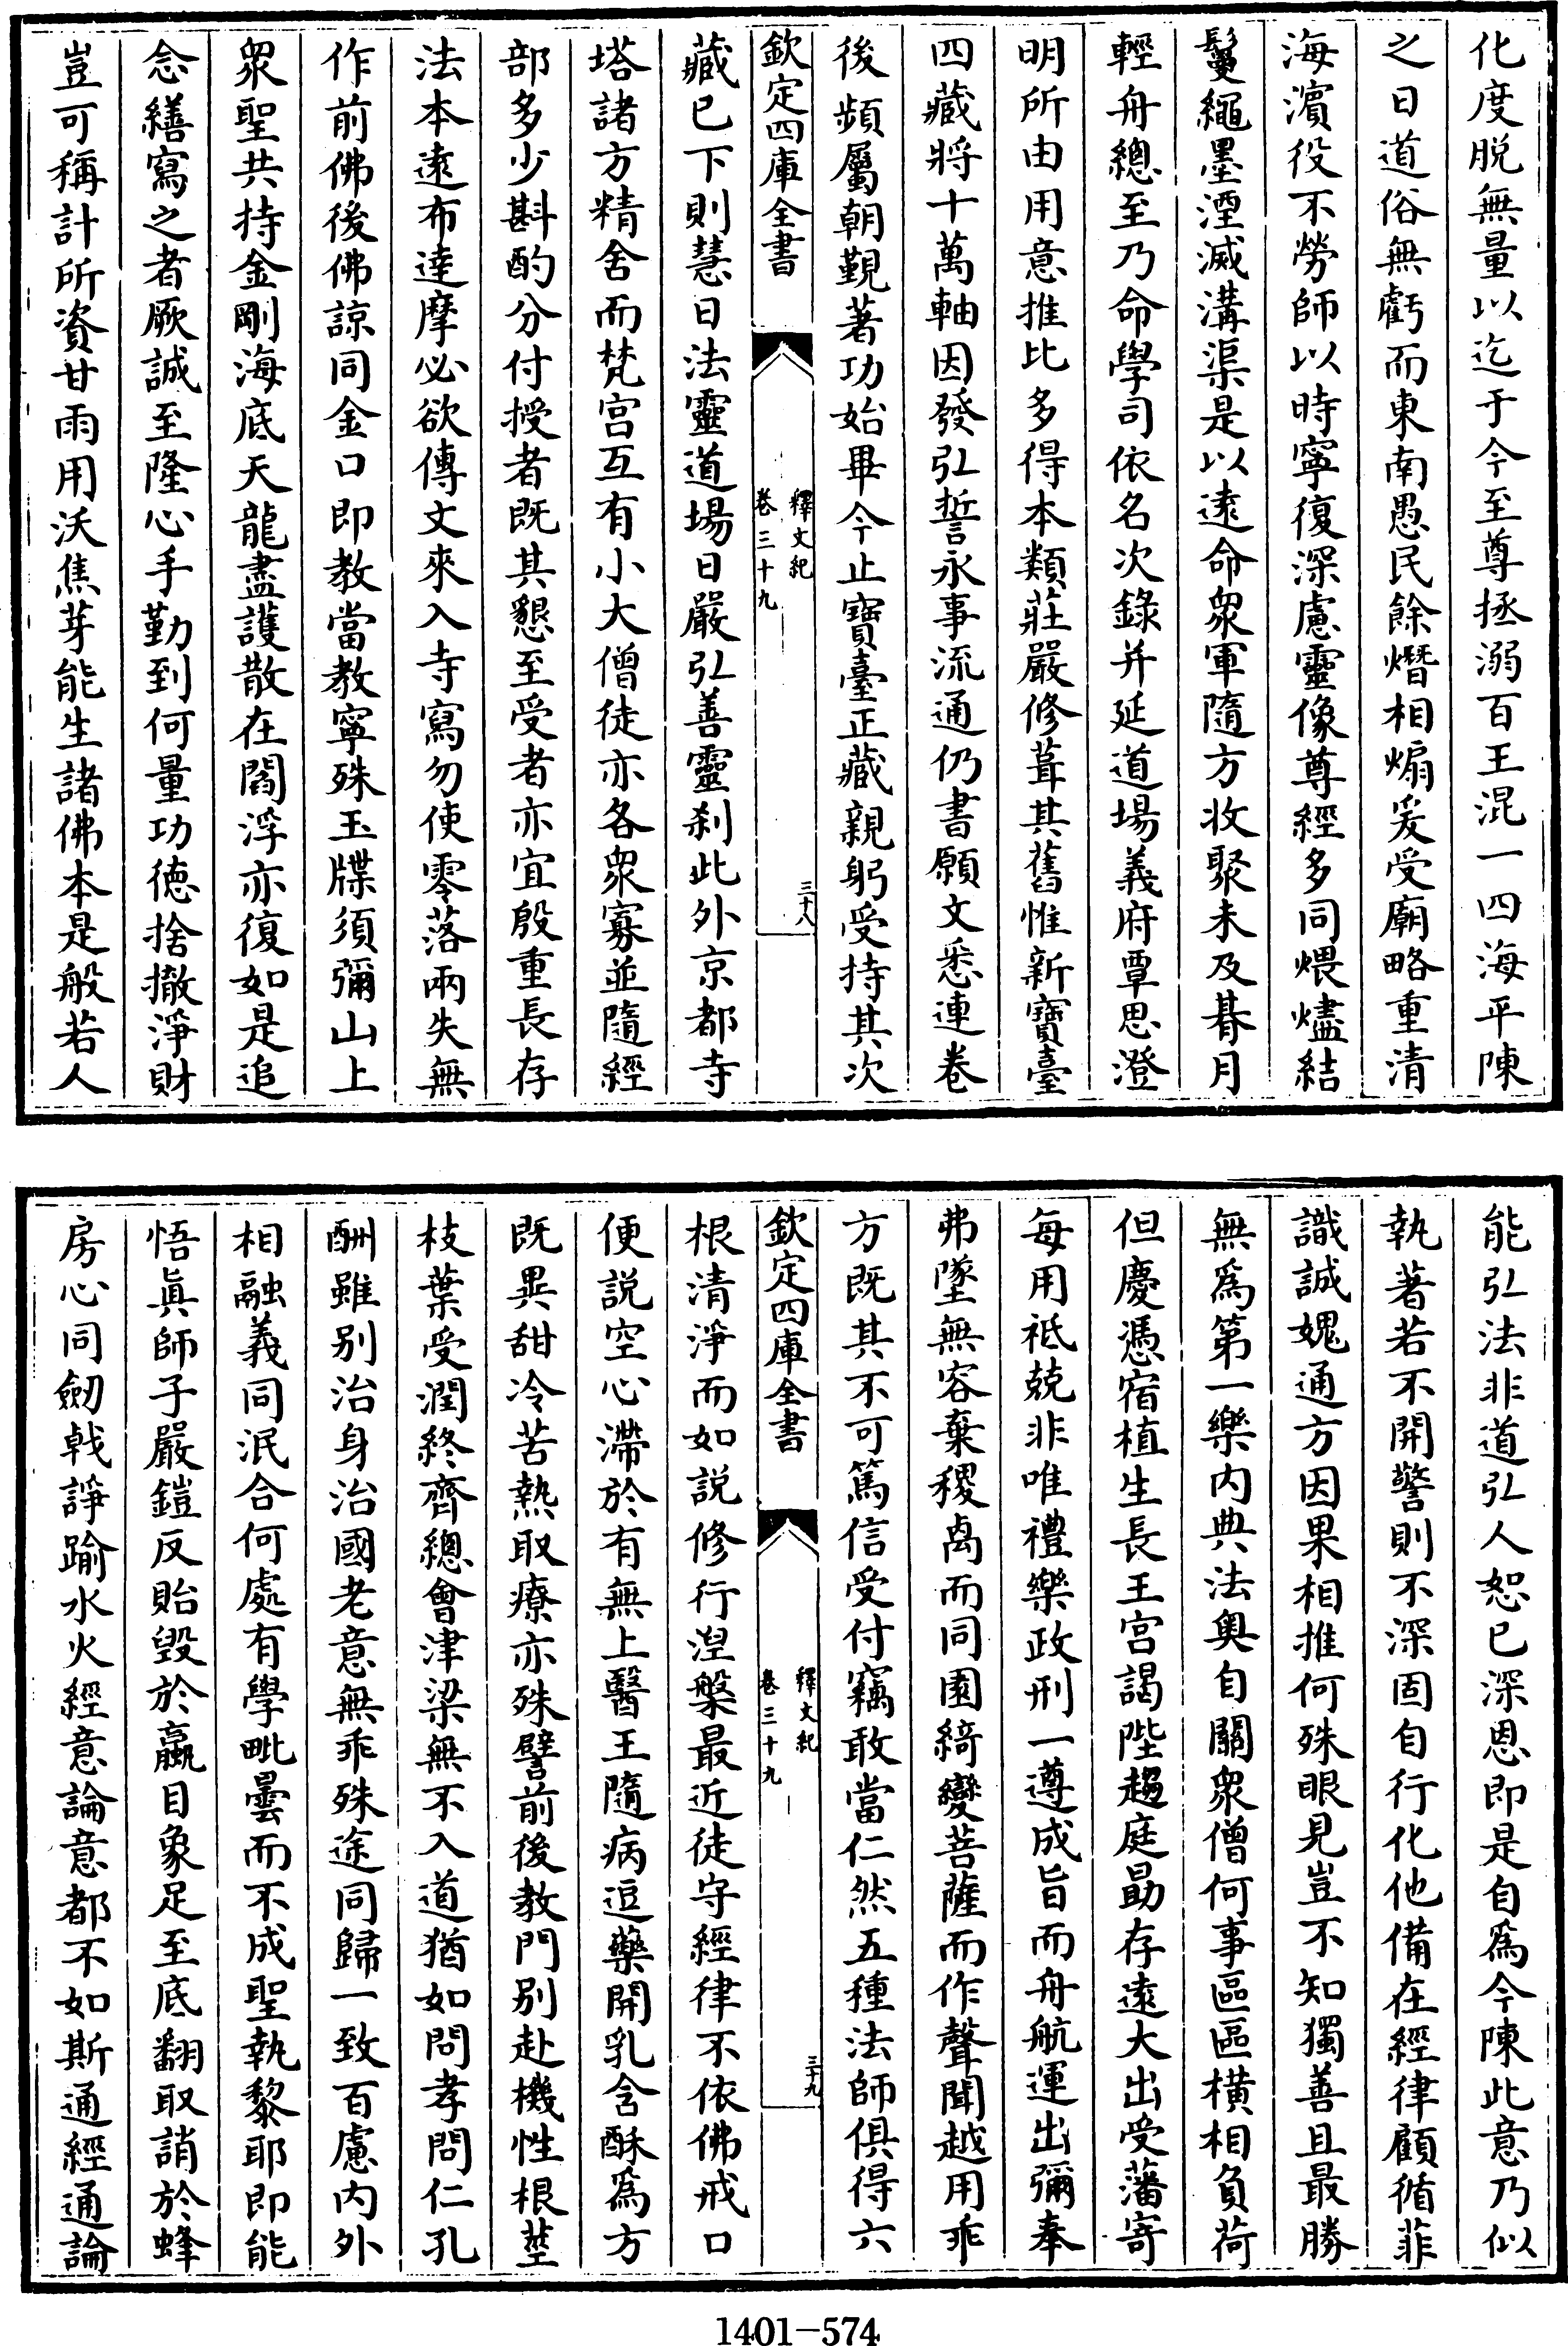 化度脱無量以迄于今至尊拯溺百王混一四海平陳
之日道俗無虧而東南愚民餘熸相煽爰受廟略重清
海濵役不勞師以時寧復深慮靈像尊經多同煨燼結
鬘繩墨湮滅溝渠是以遠命衆軍隨方收聚未及朞月
輕舟總至乃命學司依名次錄并延道場義府覃思澄
明所由用意推比多得本類莊嚴修葺其舊惟新寶臺
四藏將十萬軸因發弘誓永事流通仍書願文悉連卷
後頻屬朝覲著功始畢今止寶臺正藏親躬受持其次
欽定四庫全書
釋文紀
卷三十九
三十八
藏已下則慧日法靈道場日嚴弘善靈刹此外京都寺
塔諸方精舍而梵宫互有小大僧徒亦各衆寡並隨經
部多少斟酌分付授者既其懇至受者亦宜殷重長存
法本遠布達摩必欲傳文來入寺寫勿使零落兩失無
作前佛後佛諒同金口即教當教寧殊玉牒須彌山上
衆聖共持金剛海底天龍盡護散在閻浮亦復如是追
念繕寫之者厥誠至隆心手勤到何量功徳捨撤淨財
豈可稱計所資甘雨用沃焦芽能生諸佛本是般若人
能弘法非道弘人恕已深恩即是自爲今陳此意乃似
執著若不開警則不深固自行化他備在經律顧循菲
識誠媿通方因果相推何殊眼見豈不知獨善且最勝
無爲第一樂内典法奥自關衆僧何事區區横相負荷
但慶憑宿植生長王宫謁陛趨庭勗存遠大出受藩寄
每用祗兢非唯禮樂政刑一遵成旨而舟航運出彌奉
弗墜無容棄稷卨而同園綺變菩薩而作聲聞越用乖
方既其不可篤信受付竊敢當仁然五種法師俱得六
欽定四庫全書
釋文紀
卷三十九
三十九
根清淨而如説修行涅槃最近徒守經律不依佛戒口
便説空心滯於有無上醫王隨病逗藥開乳含酥爲方
既異甜冷苦熱取療亦殊譬前後教門别赴機性根莖
枝葉受潤終齊總會津梁無不入道猶如問孝問仁孔
酬雖别治身治國老意無乖殊途同歸一致百慮内外
相融義同泯合何處有學毗曇而不成聖執黎耶即能
悟眞師子嚴鎧反貽毀於蠃目象足至底翻取誚於蜂
房心同劒戟諍踰水火經意論意都不如斯通經通論
1401-574